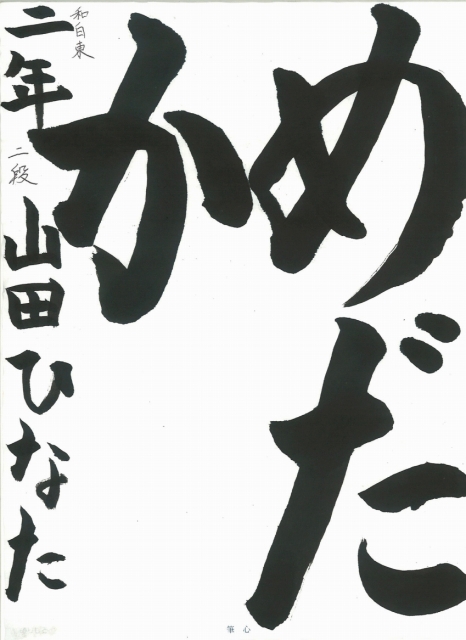 めだ
か
和白東
二年
二段
山田ひなた
筆心